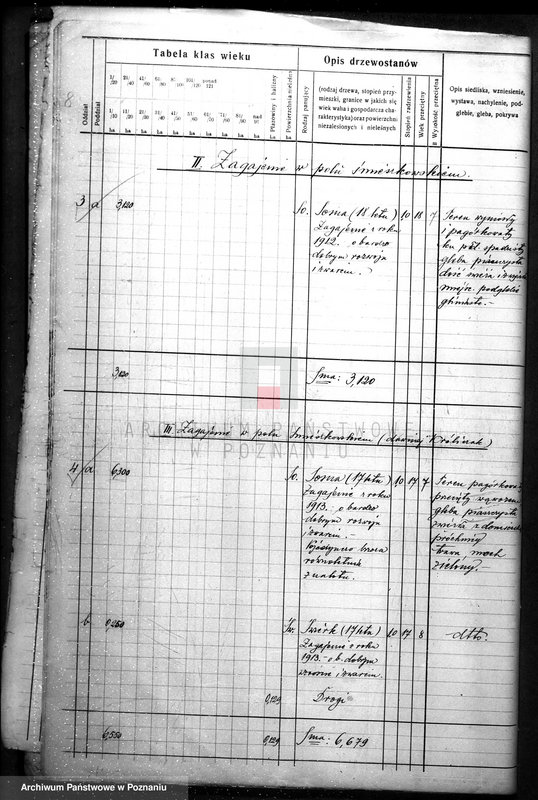 Tabela klas wieku
Opis drzewostanów
Oddział
Poddział
1/20 21/40 41/60 61/80 81/100 101/120 ponad 121
1/10 11/20 21/30 31/40 41/50 51/60 61/70 71/80 81/90 nad
ha ha ha ha ha ha ha ha ha ha
Płazowiny i halizny
Powierzchnia nieleśna
Rodzaj panujący
(rodzaj drzewa, stopień przymieszki, granice w jakich się wiek waha i gospodarcza charakterystyka) oraz powierzchni niezalesionych i nieleśnych
Stopień zadrzewienia
Wiek przeciętny
Wysokość przeciętna
Opis siedliska, wzniesienie, wystawa, nachylenie, podglebie, gleba, pokrywa
II. Zagajenie w polu śmieszkowskiem.
3 a 3,120 So. Sosna (18 letn) 10 18 7 Teren wyniosły
Zagajenie z roku i pagórkowaty
1912. o bardzo
dobrym rozwoju gleba piaszczysta
i zwarciu.
podglebie
gliniaste.-
3,120 Sma: 3,120
III. Zagajenie w polu Śmieszkowskiem (dawniej Królczak)
4 a 6,300 So. Sosna (17 letn) 10 17 7 Teren pagórkowaty
Zagajenie z roku przecięty wąwozem
1913. o bardzo gleba piaszczysta
dobrym rozwoju świeża z domieszką
i zwarciu.- próchnicy
Pojedyncza brzoza trawa, mech
równoletnia zielony.-
z nalotu.
b 0,250 Św. Świerk (17 letn) 10 17 8 -dtto-
Zagajenie z roku
1913.- o b. dobrym
wzroście i zwarciu.
0,129 Drogi
6,550 0,129 Sma: 6,679
ARCHIWUM PAŃSTWOWE
W POZNANIU
Archiwum Państwowe w Poznaniu